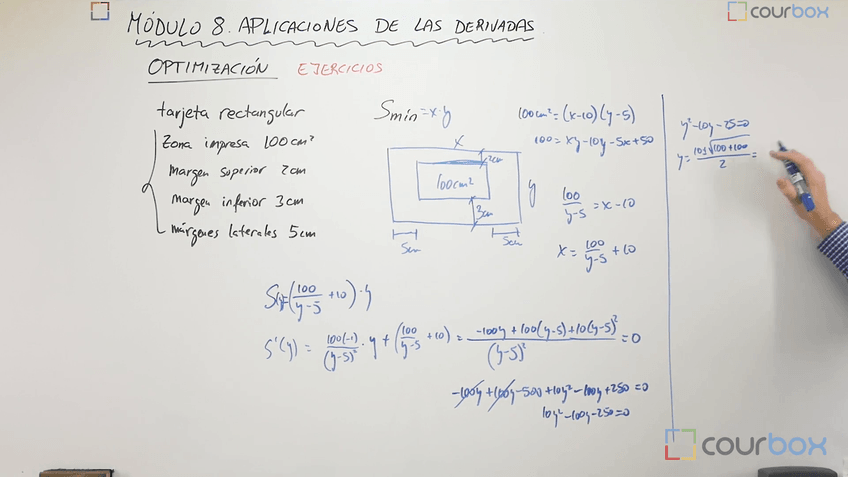 courbox
MÓDULO 8. APLICACIONES DE LAS DERIVADAS
OPTIMIZACIÓN EJERCICIOS
tarjeta rectangular
Zona impresa 100cm²
Margen superior 2cm
Margen inferior 3cm
márgenes laterales 5cm
Smín = x·y
x
2cm
100cm²
y
3cm
5cm 5cm
100cm² = (x-10)(y-5)
100 = xy-10y-5x+50
100/(y-5) = x-10
x = 100/(y-5) + 10
S(y)=(100/(y-5) + 10)·y
S'(y) = 100(-1)/(y-5)² · y + (100/(y-5) + 10) = (-100y + 100(y-5) + 10(y-5)²)/(y-5)² = 0
-100y + 100y - 500 + 10y² - 100y + 250 = 0
10y² - 100y - 250 = 0
y² - 10y - 25 = 0
y = (10 ± √(100 + 100))/2 =
courbox